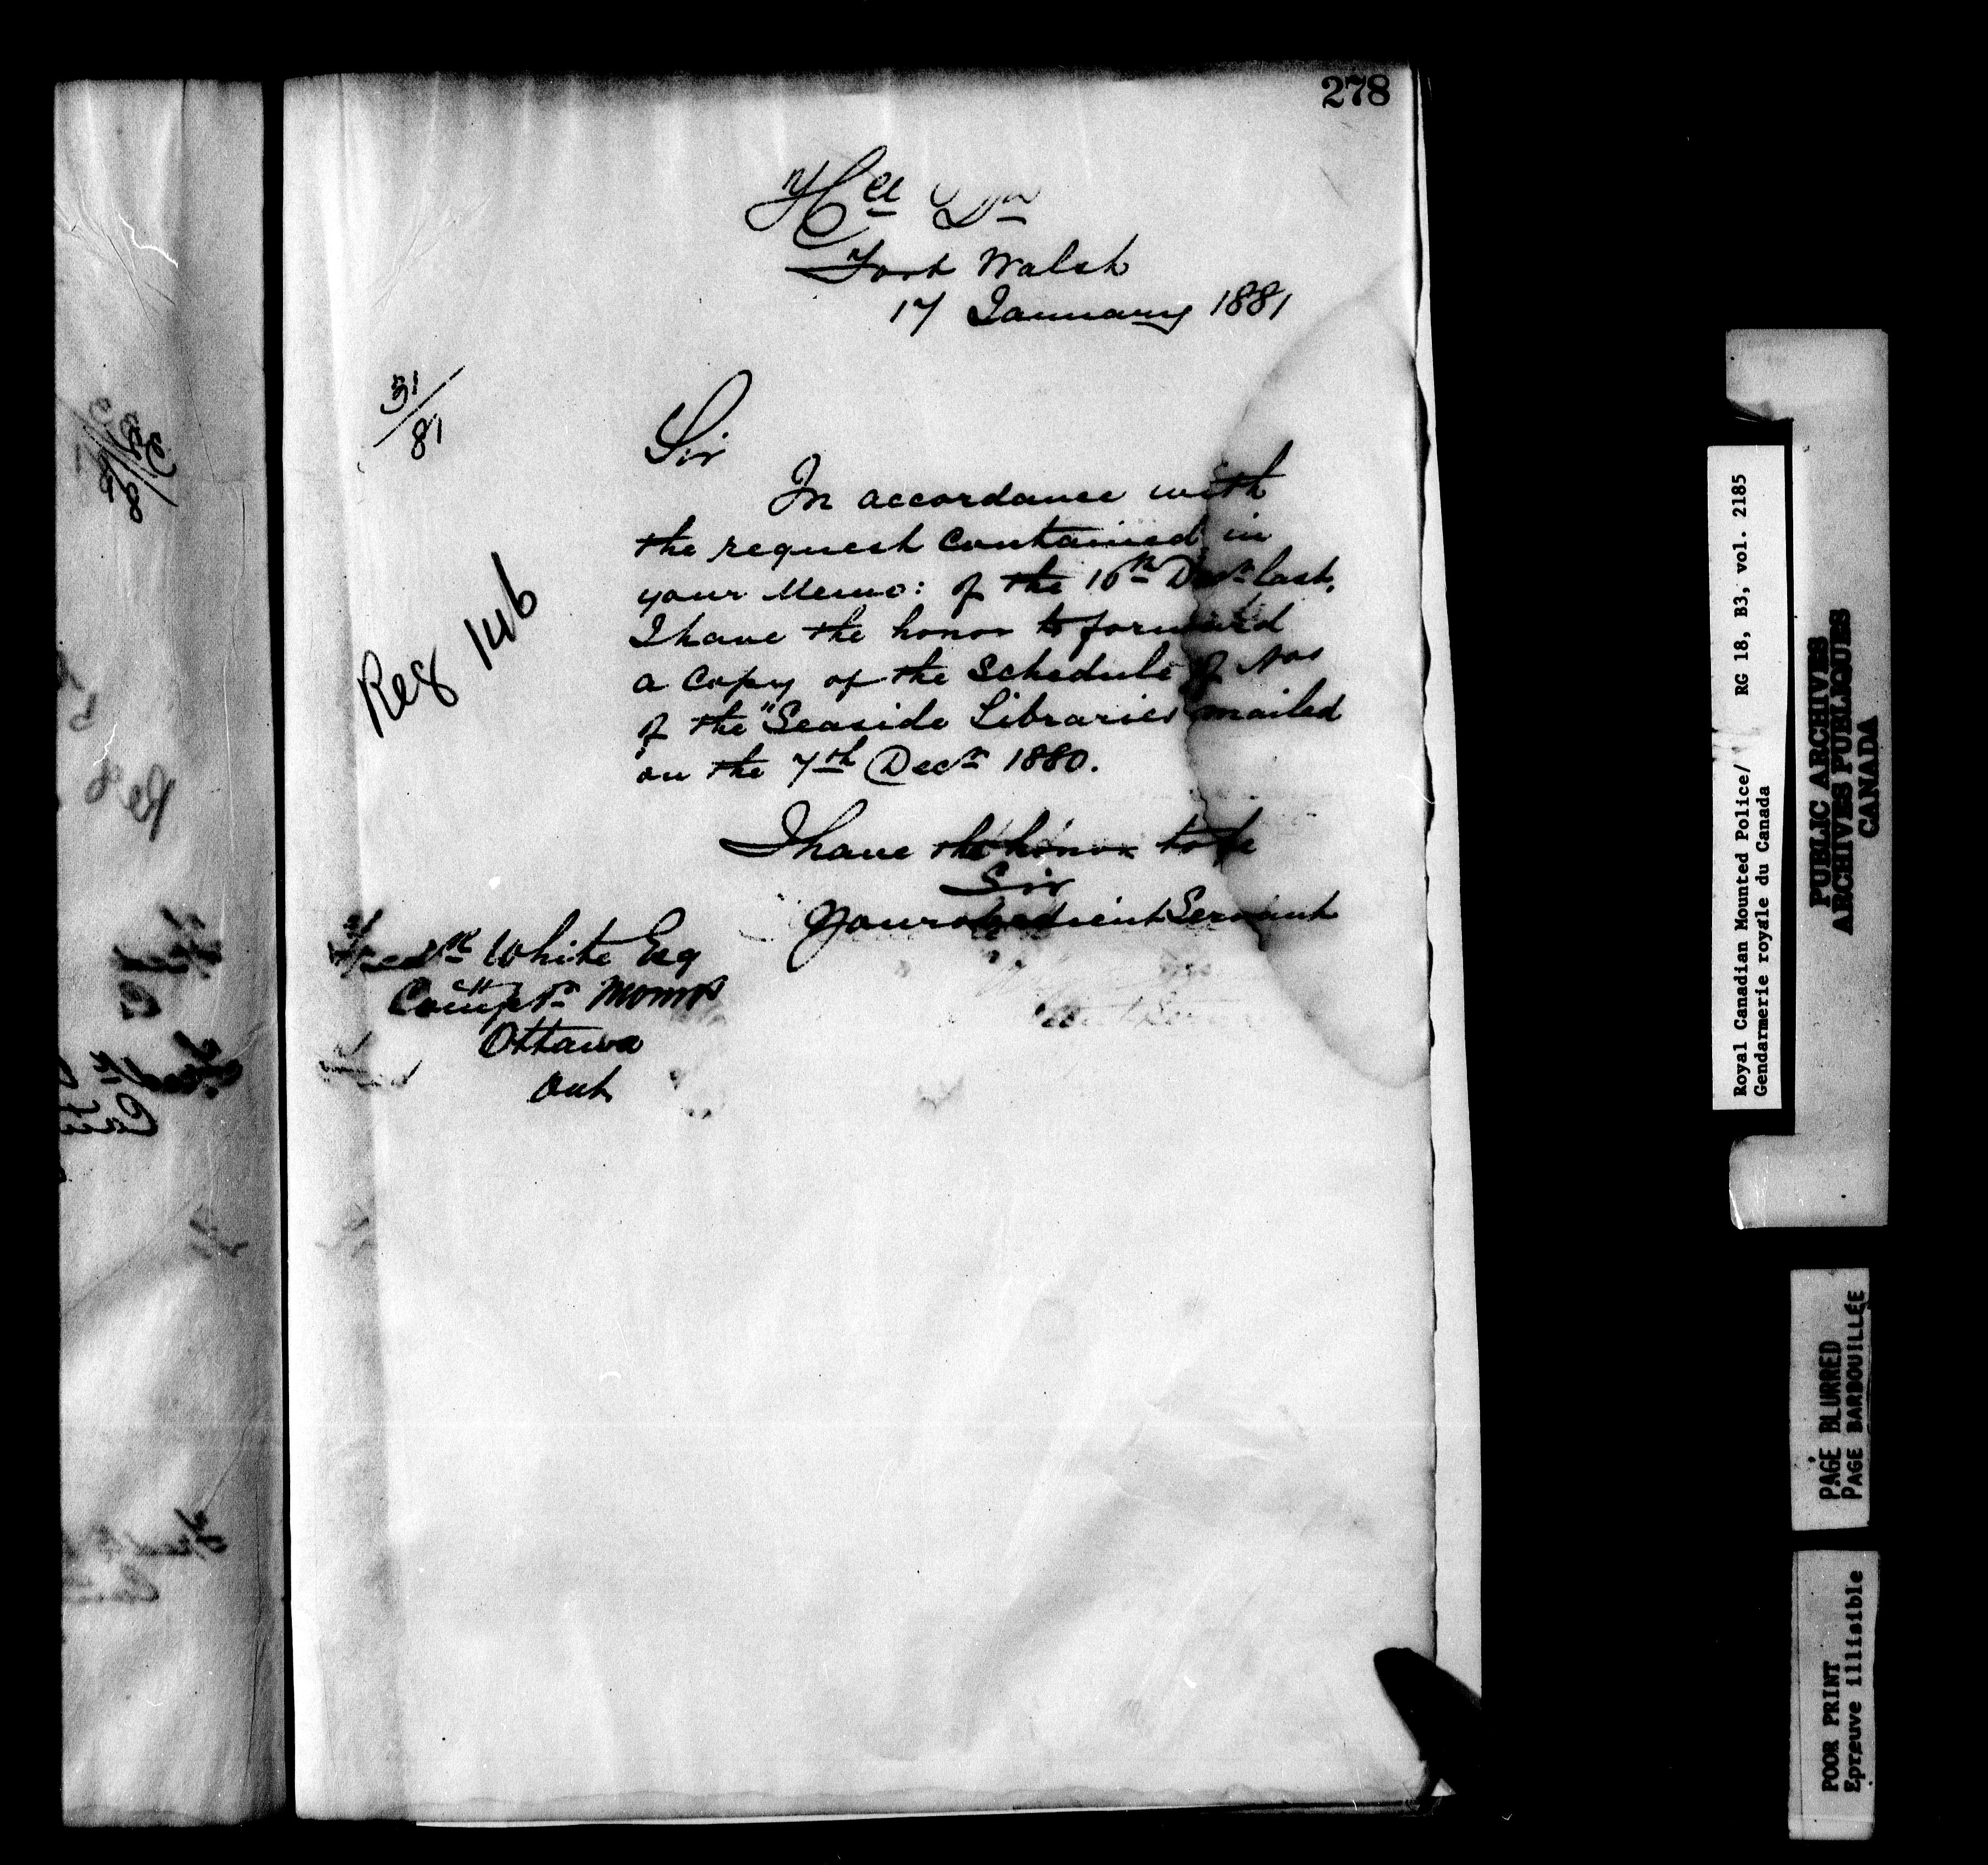 278
Fort Walsh
17 January 1881
31/81
Sir
In accordance with
the request contained in
your Memo: of the 16th Decr last,
I have the honor to forward
a copy of the Schedule of Nos
of the "Seaside Libraries mailed
on the 7th Decr 1880.
Reg 146
I have the honor to be
Sir
Your obedient Servant
White Esq
Ottawa
Ont
Royal Canadian Mounted Police/ RG 18, B3, vol. 2185
Gendarmerie royale du Canada
PUBLIC ARCHIVES
ARCHIVES PUBLIQUES
CANADA
PAGE BLURRED
PAGE BARBOUILLÉE
POOR PRINT
Epreuve illisible